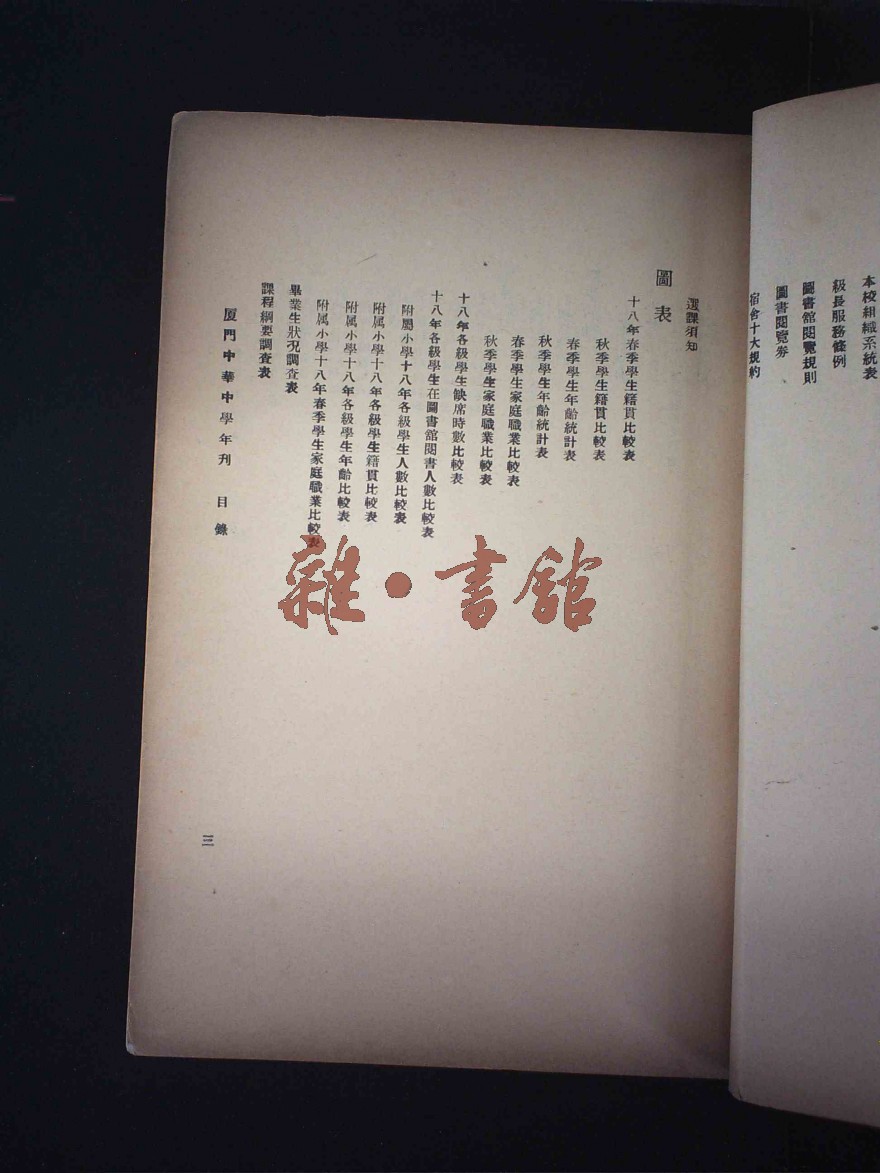 本校組織系統表
級長服務條例
圖書舘閱覽規則
圖書閱覽券
宿舍十大規約
選課須知
圖表
十八年春季學生籍貫比較表
秋季學生籍貫比較表
春季學生年齡統計表
秋季學生年齡統計表
春季學生家庭職業比較表
秋季學生家庭職業比較表
十八年各級學生缺席時數比較表
十八年各級學生在圖書舘閱書人數比較表
附屬小學十八年各級學生人數比較表
附属小學十八年各級學生籍貫比較表
附属小學十八年各級學生年齡比較表
附属小學十八年春季學生家庭職業比較表
畢業生狀況調查表
課程綱要調查表
厦門中華中學年刊 目錄
三
雜·書館